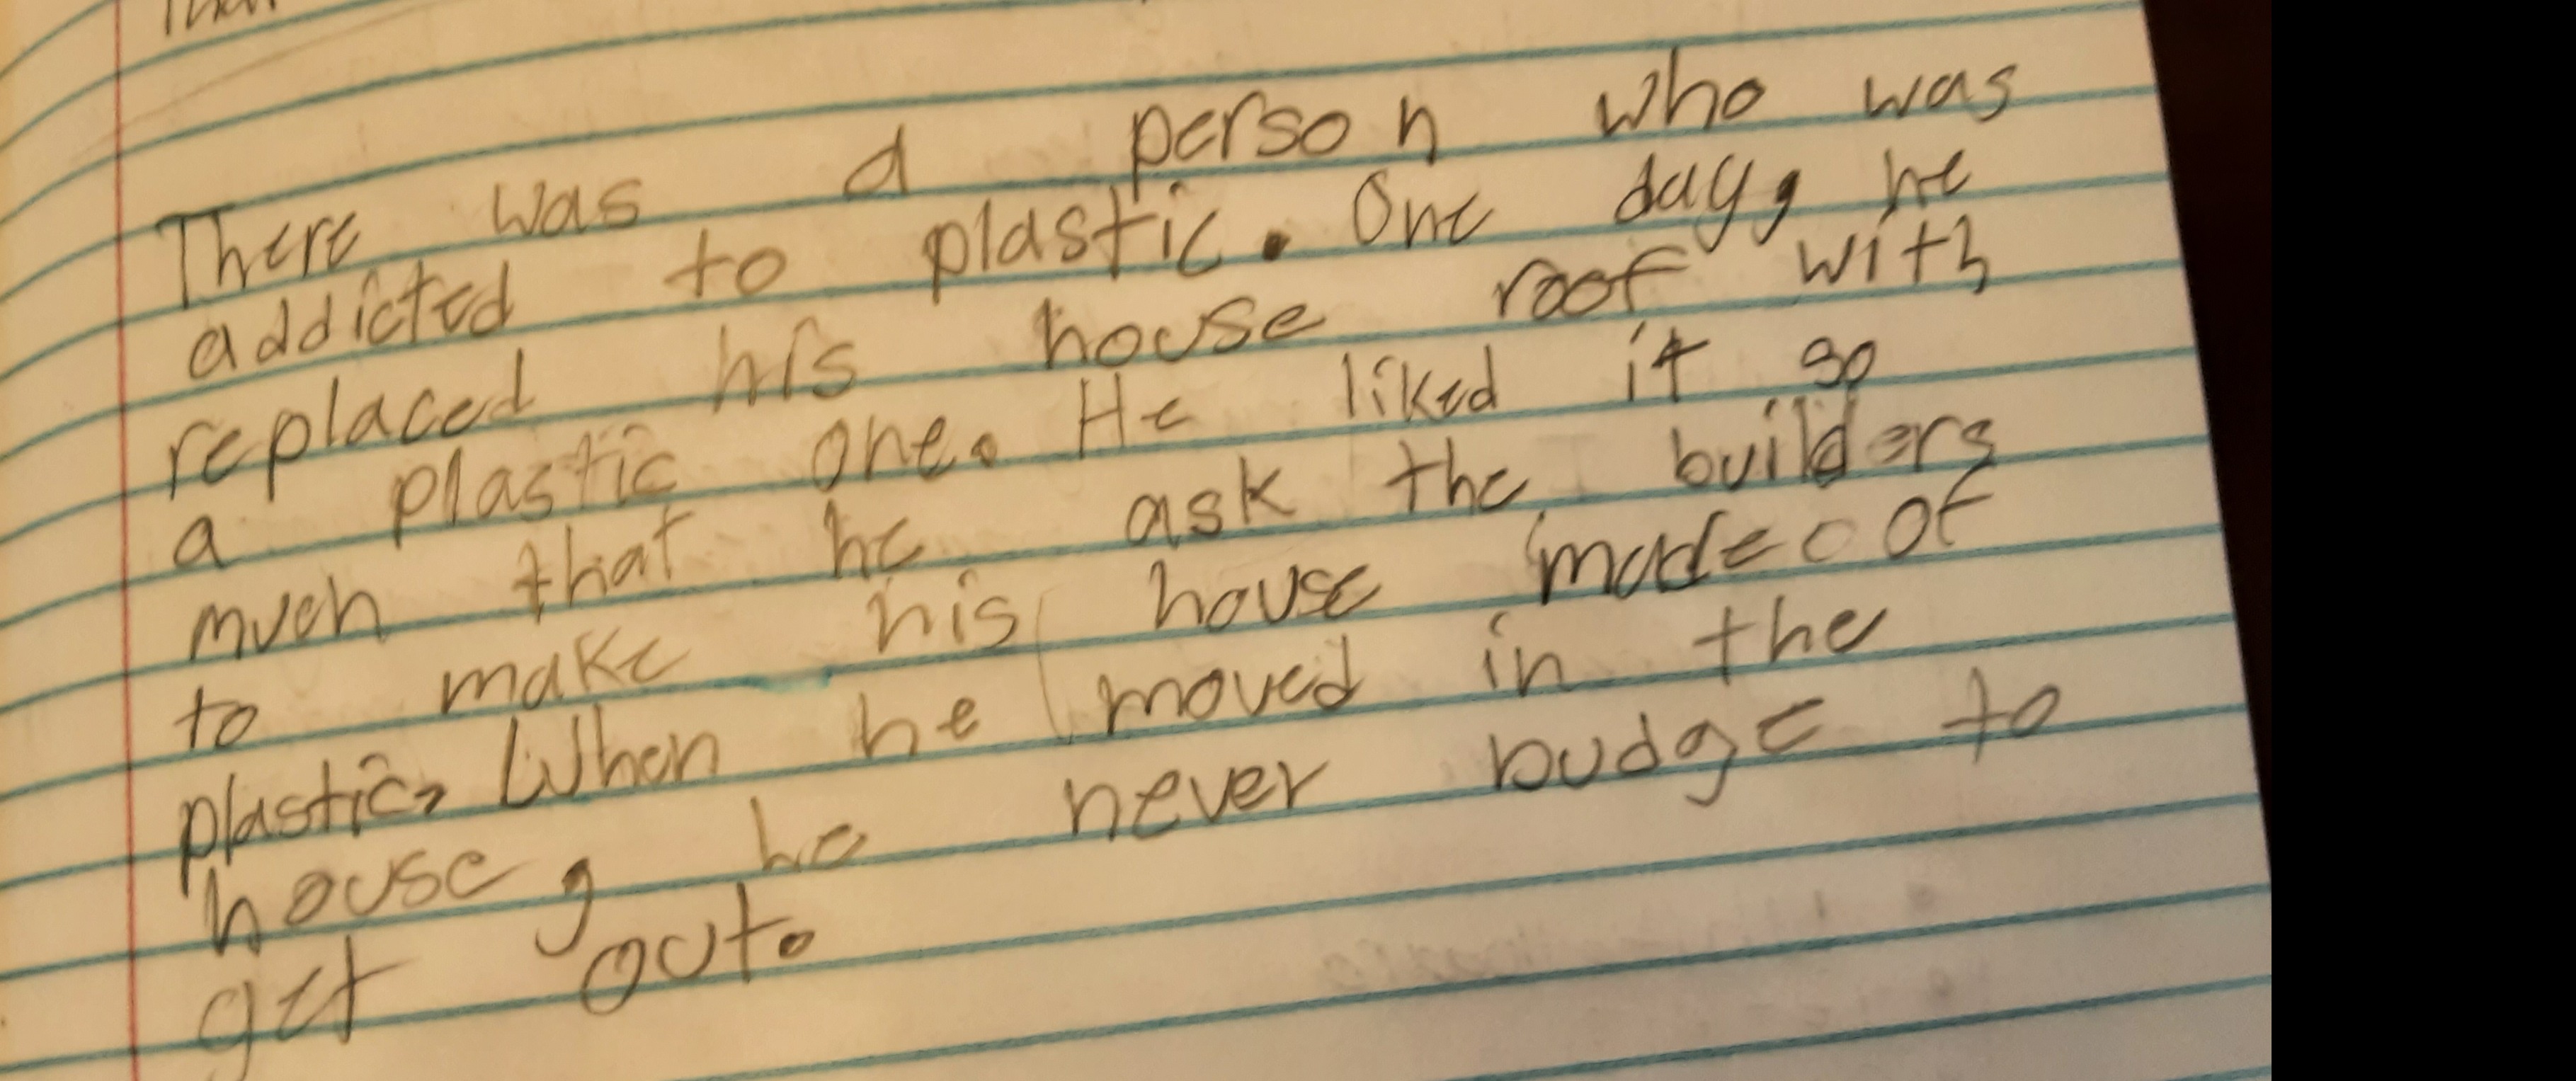 There was a person who was
addicted to plastic. One day, he
replaced his house roof with
a plastic one. He liked it so
much that he ask the builders
to make his house made of
plastic. When he moved in the
house, he never budge to
get out.